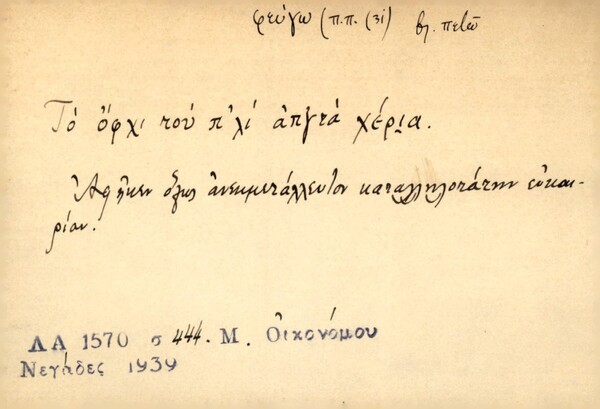 φεύγω (π.π. (3ί) βλ. πετῶ
Τὸ ὄφχι τοὺ π'λί ἀπ'τά χέρια.
Ἀφῆκεν ἀνεκμετάλλευτον καταλληλοτάτην εὐκαι-
ρίαν.
ΛΑ 1570 σ 444. Μ. Οἰκονόμου
Νεγάδες 1939